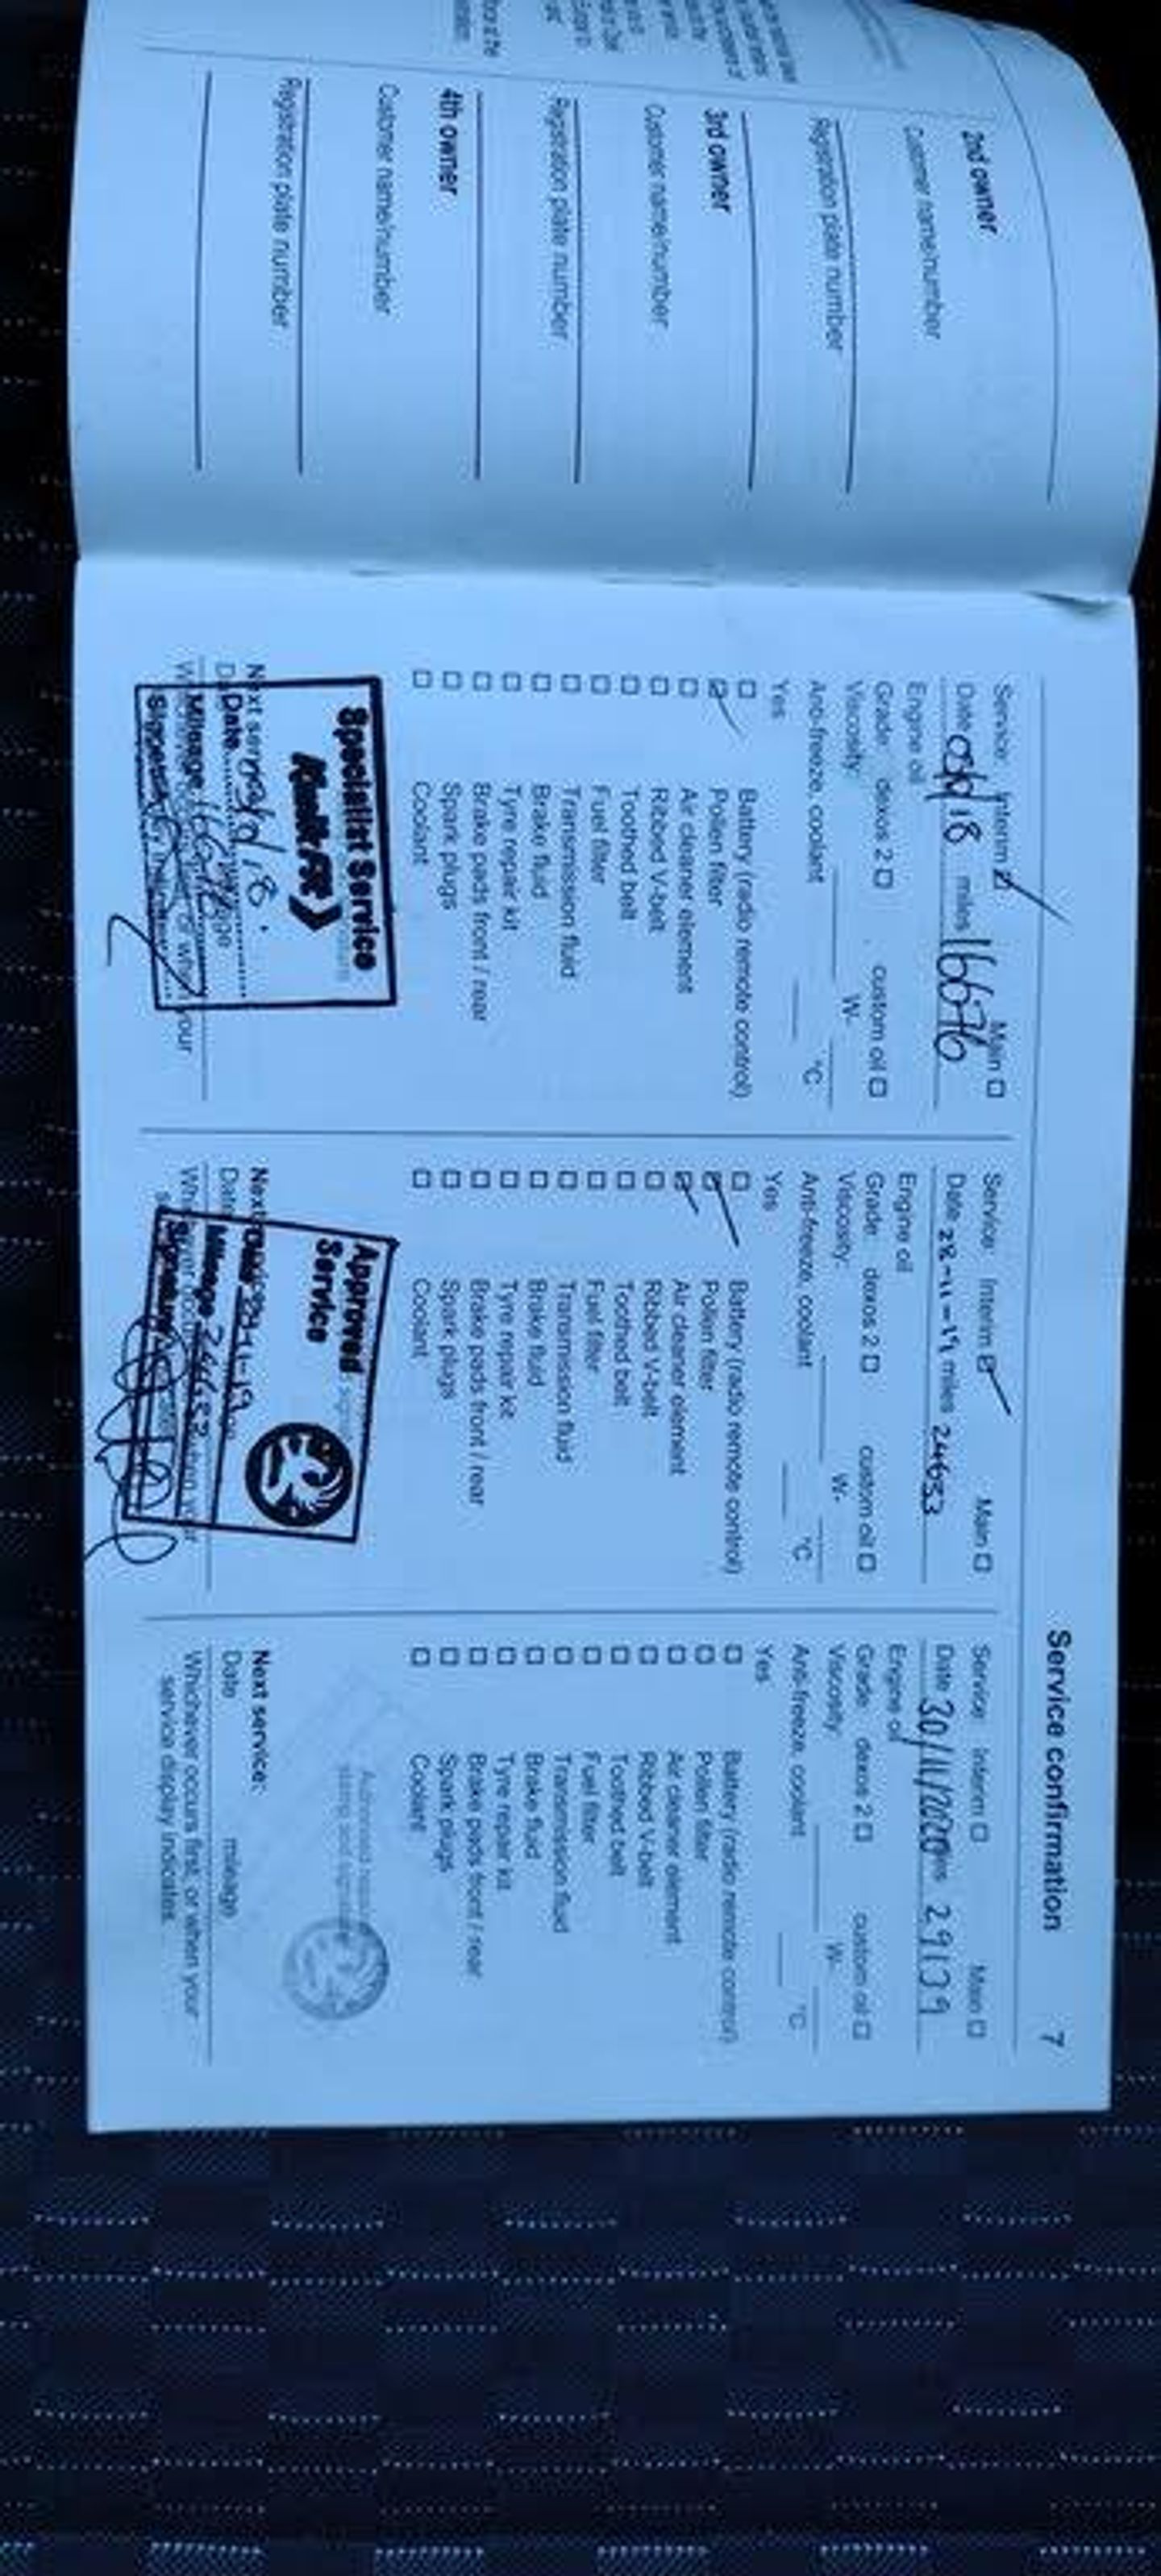 2nd owner
Customer name/number
Registration plate number
3rd owner
Customer name/number
Registration plate number
4th owner
Customer name/number
Registration plate number
Service confirmation 7
Service: Interim Main
Date miles 16676
Engine oil
Grade: dexos 2 custom oil
Viscosity: W-
Anti-freeze, coolant °C
Yes
Battery (radio remote control)
Pollen filter
Air cleaner element
Ribbed V-belt
Toothed belt
Fuel filter
Transmission fluid
Brake fluid
Tyre repair kit
Brake pads front / rear
Spark plugs
Coolant
Specialist Service
Date
Mileage
Service: Interim Main
Date 28-11-19 miles 24633
Engine oil
Grade: dexos 2 custom oil
Viscosity: W-
Anti-freeze, coolant °C
Yes
Battery (radio remote control)
Pollen filter
Air cleaner element
Ribbed V-belt
Toothed belt
Fuel filter
Transmission fluid
Brake fluid
Tyre repair kit
Brake pads front / rear
Spark plugs
Coolant
Approved
Service
Date 28-11-19
Mileage 24633
Signature
Service: Interim Main
Date 30/11/2020 miles 29139
Engine oil
Grade: dexos 2 custom oil
Viscosity: W-
Anti-freeze, coolant °C
Yes
Battery (radio remote control)
Pollen filter
Air cleaner element
Ribbed V-belt
Toothed belt
Fuel filter
Transmission fluid
Brake fluid
Tyre repair kit
Brake pads front / rear
Spark plugs
Coolant
Next service:
Date mileage
Whichever occurs first, or when your
service display indicates.